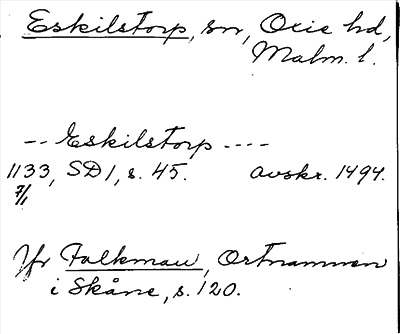 Eskilstorp, sn, Oxie hd,
Malm. l.
-- Eskilstorp ----
1133, SD 1, s. 45. avskr. 1494.
7/1
Jfr Falkman, Ortnamnen
i Skåne, s. 120.